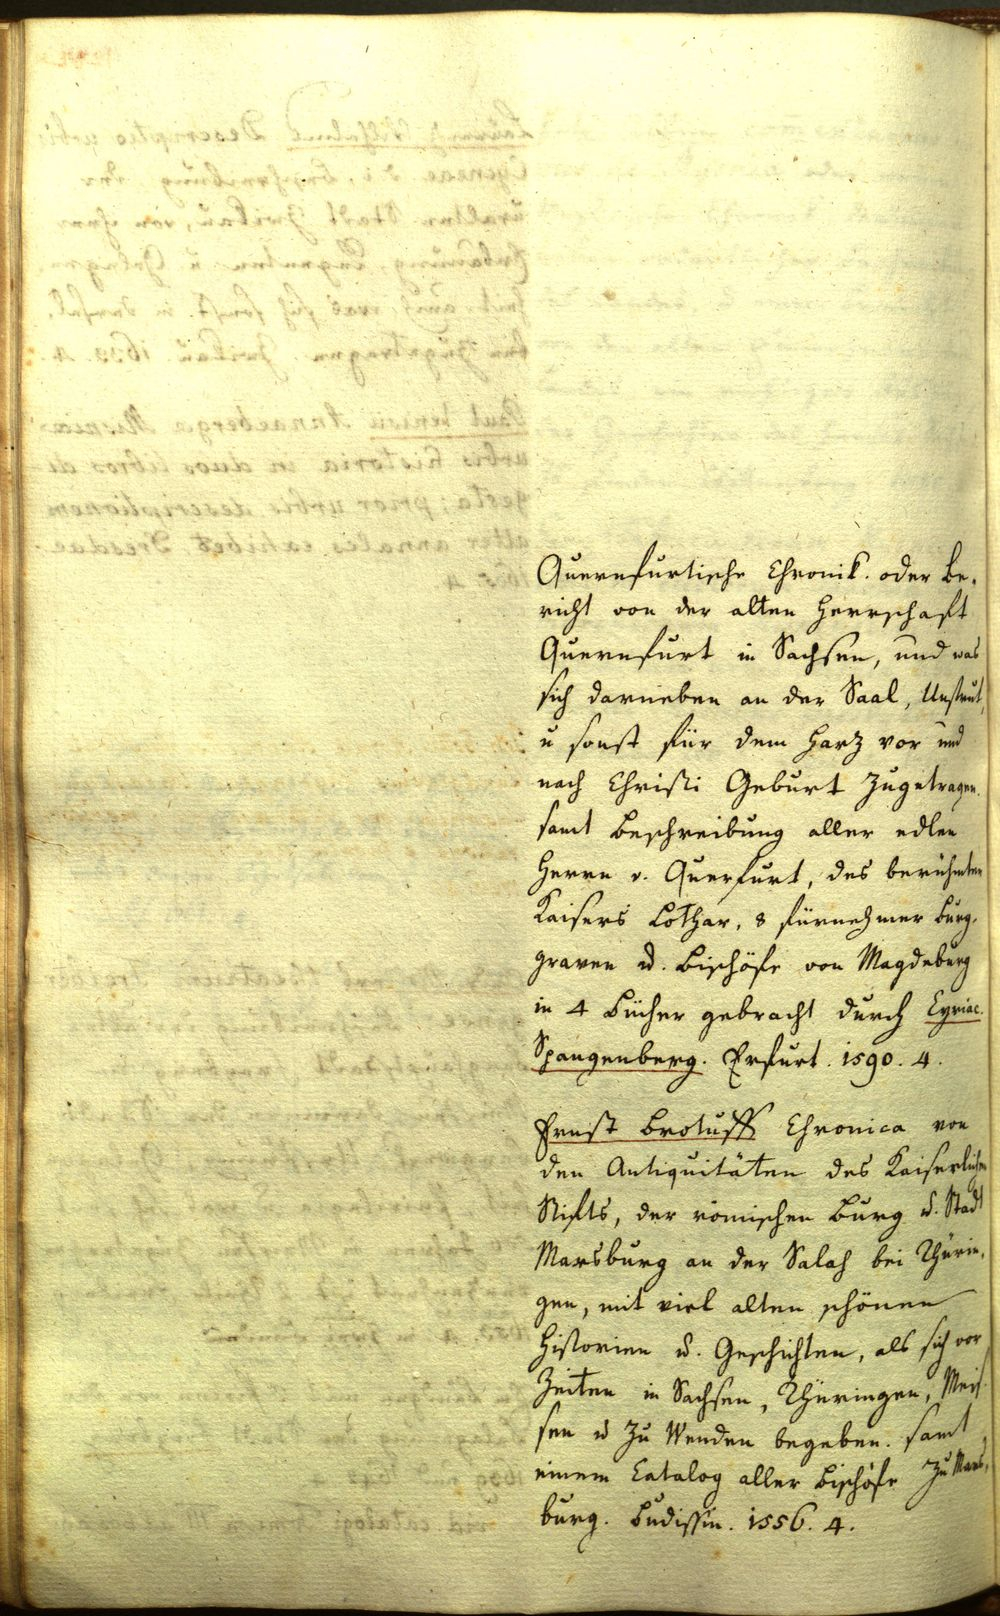 Quernfurtische Chronik. oder Be-
richt von der alten Herrschaft
Quernfurt in Sachsen, und was
sich darneben an der Saal, Unstrut,
u sonst für dem Harz vor und
nach Christi Geburt zugetragen.
samt Beschreibung aller edlen
Herrn v. Querfurt, des berühmten
Kaisers Lothar, 8 fürnehmer Burg-
graven u. Bischöfe von Magdeburg
in 4 Bücher gebracht durch Cyriac.
Spangenberg. Erfurt. 1590. 4.
Ernst Brotuff Chronica von
den Antiquitäten des Kaiserlichen
Stifts, der römischen Burg u. Stadt
Marsburg an der Salah bei Thürin-
gen, mit viel alten schönen
Historien u. Geschichten, als sich vor
Zeiten in Sachsen, Thüringen, Meis-
sen u zu Wenden begeben. samt
einem Catalog aller Bischöfe zu Mars-
burg. Budissin. 1556. 4.